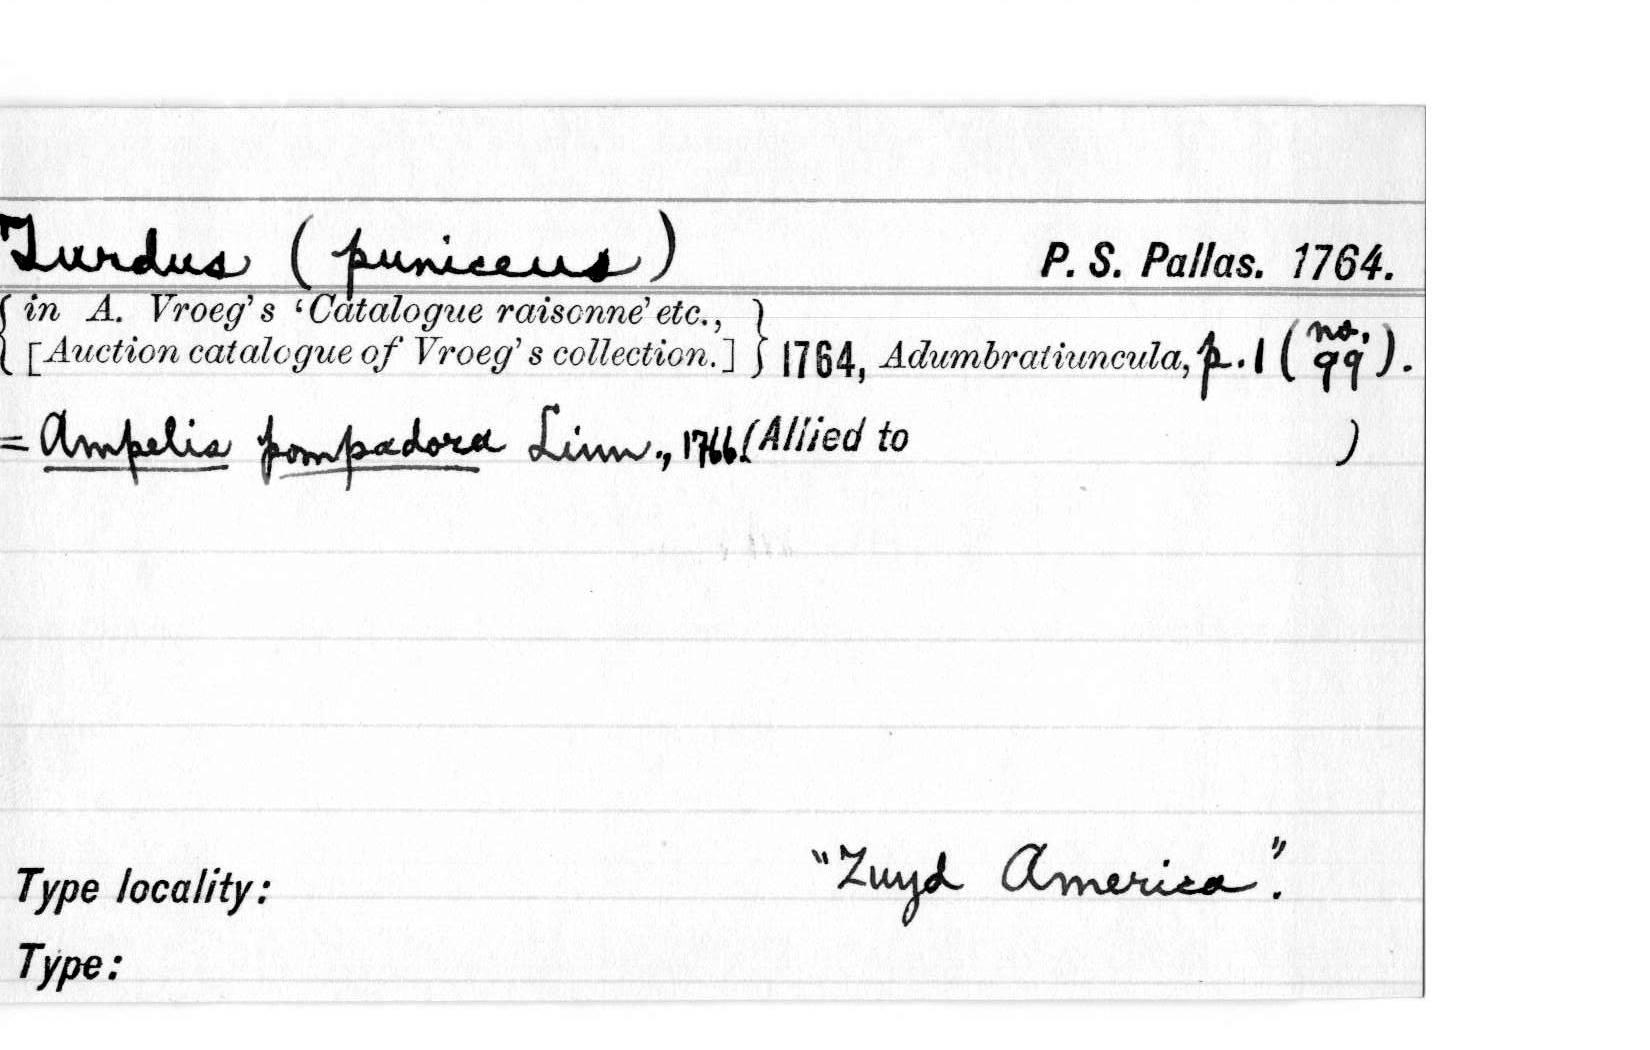 Turdus (puniceus) P. S. Pallas. 1764.
{ in A. Vroeg's 'Catalogue raisonne' etc., }
{ [Auction catalogue of Vroeg's collection.] } 1764, Adumbratiuncula, p. 1 (no. 99).
= Ampelis pompadora Linn., 1766. (Allied to )
Type locality: "Zuyd America".
Type: